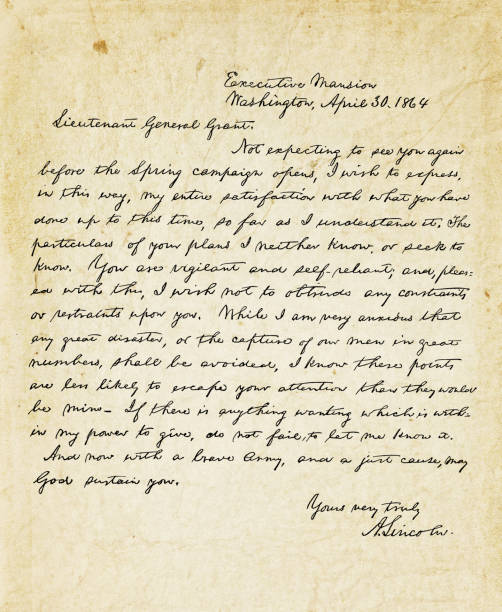 Executive Mansion
Washington, April 30. 1864
Lieutenant General Grant.
Not expecting to see you again
before the Spring campaign opens, I wish to express,
in this way, my entire satisfaction with what you have
done up to this time, so far as I understand it. The
particulars of your plans I neither know, or seek to
know. You are vigilant and self-reliant; and, pleas-
ed with this, I wish not to obtrude any constraints
or restraints upon you. While I am very anxious that
any great disaster, or the capture of our men in great
numbers, shall be avoided, I know these points
are less likely to escape your attention than they would
be mine— If there is anything wanting which is with-
in my power to give, do not fail, to let me know it.
And now with a brave Army, and a just cause, may
God sustain you.
Yours very truly
A. Lincoln.